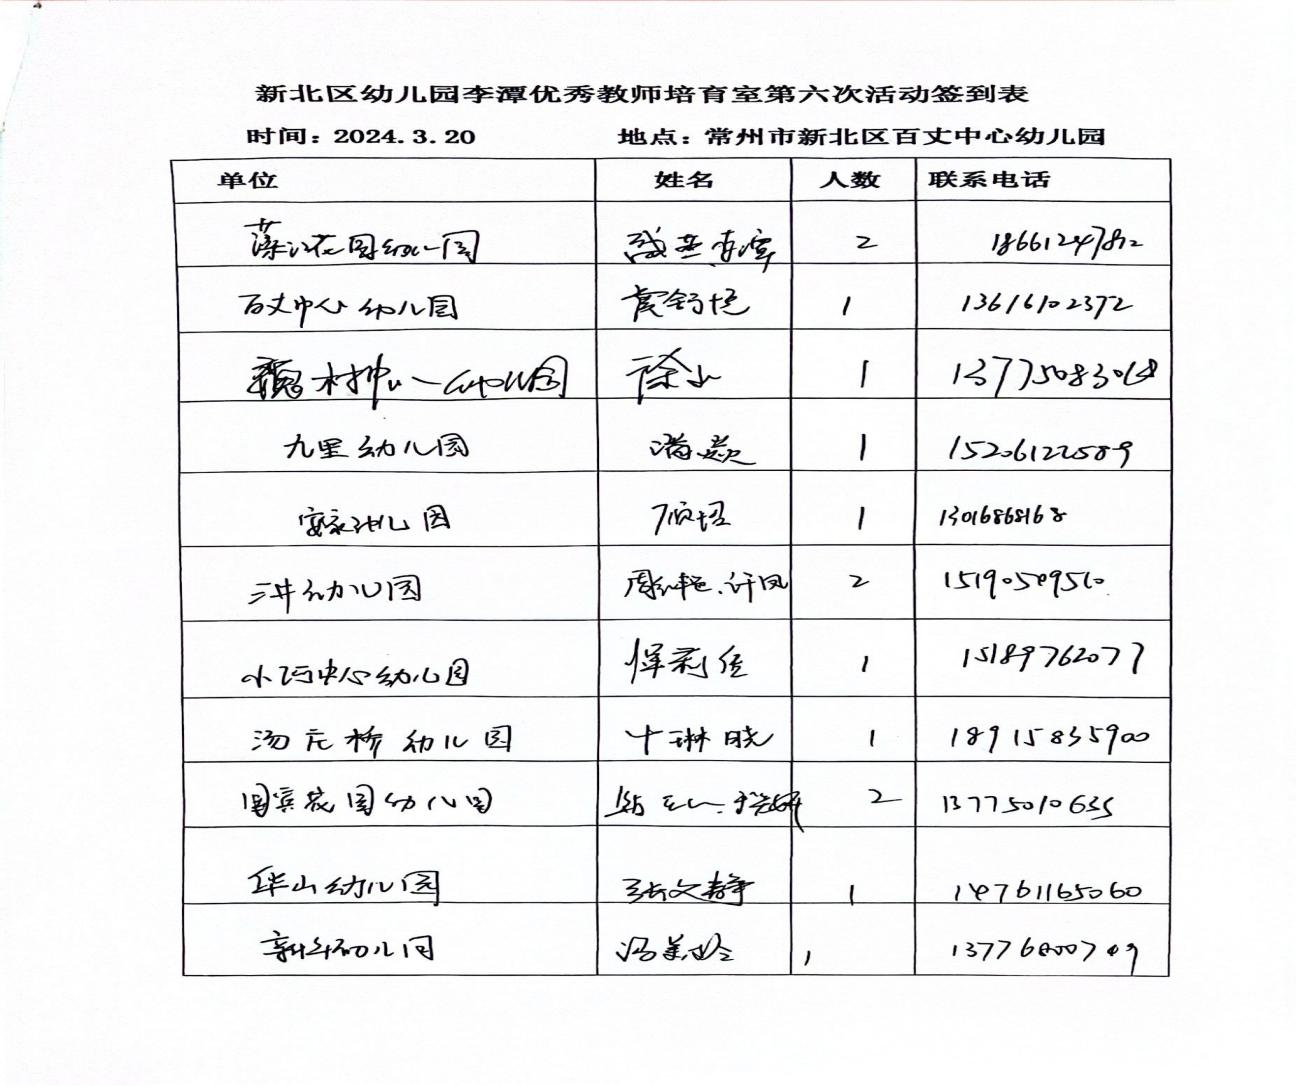 新北区幼儿园李潭优秀教师培育室第六次活动签到表
时间：2024.3.20 地点：常州市新北区百丈中心幼儿园
单位 姓名 人数 联系电话
藻江花园幼儿园 李潭 2 18661247812
百丈中心幼儿园 1 13616102372
魏村中心幼儿园 徐 1 13775083068
九里幼儿园 潘 1 15206122589
安家幼儿园 1 13016868168
三井幼儿园 周艳、许凤 2 15190509510
小河中心幼儿园 恽莉佳 1 15189762077
汤庄桥幼儿园 琳晓 1 18915835900
国宾花园幼儿园 2 13775010635
华山幼儿园 张文静 1 14761165060
新华幼儿园 冯美玲 1 13776800709